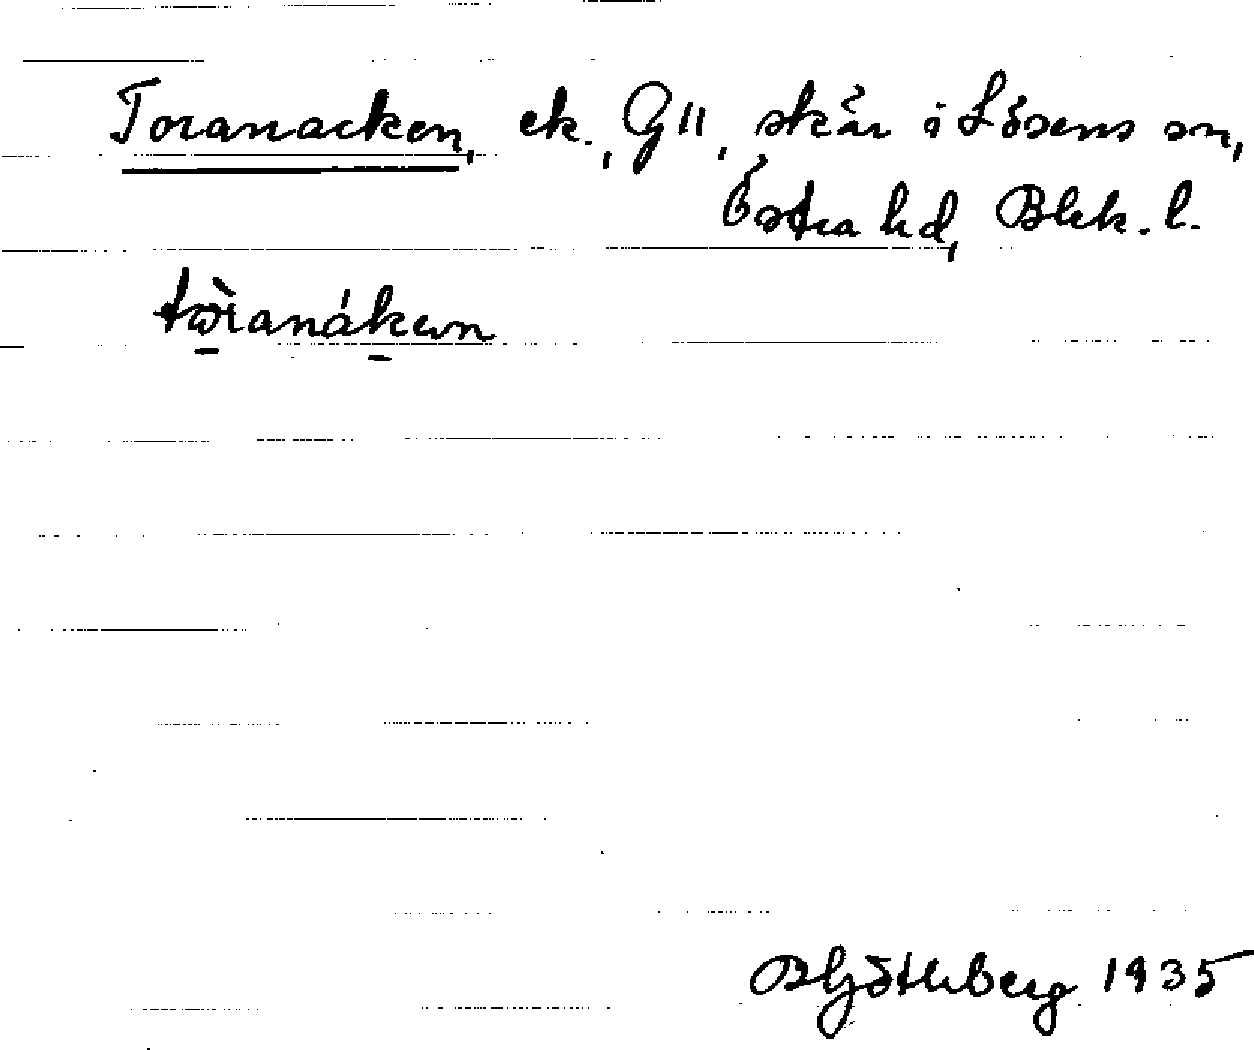 Toranacken, ek., G11, skär i Lösens sn,
Östra hd, Blek. l.
tòranákən
B Göthberg 1935